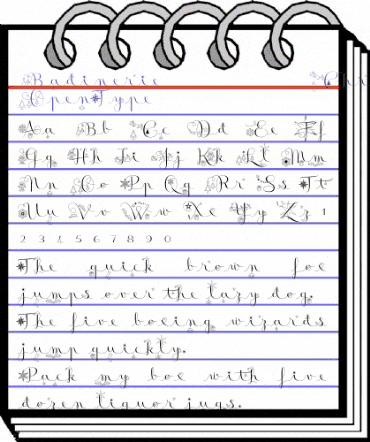 Badinerie Chr
OpenType
Aa Bb Cc Dd Ee Ff
Gg Hh Ii Jj Kk Ll Mm
Nn Oo Pp Qq Rr Ss Tt
Uu Vv Ww Xx Yy Zz 1
2 3 4 5 6 7 8 9 0
The quick brown fox
jumps over the lazy dog.
The five boxing wizards
jump quickly.
Pack my box with five
dozen liquor jugs.